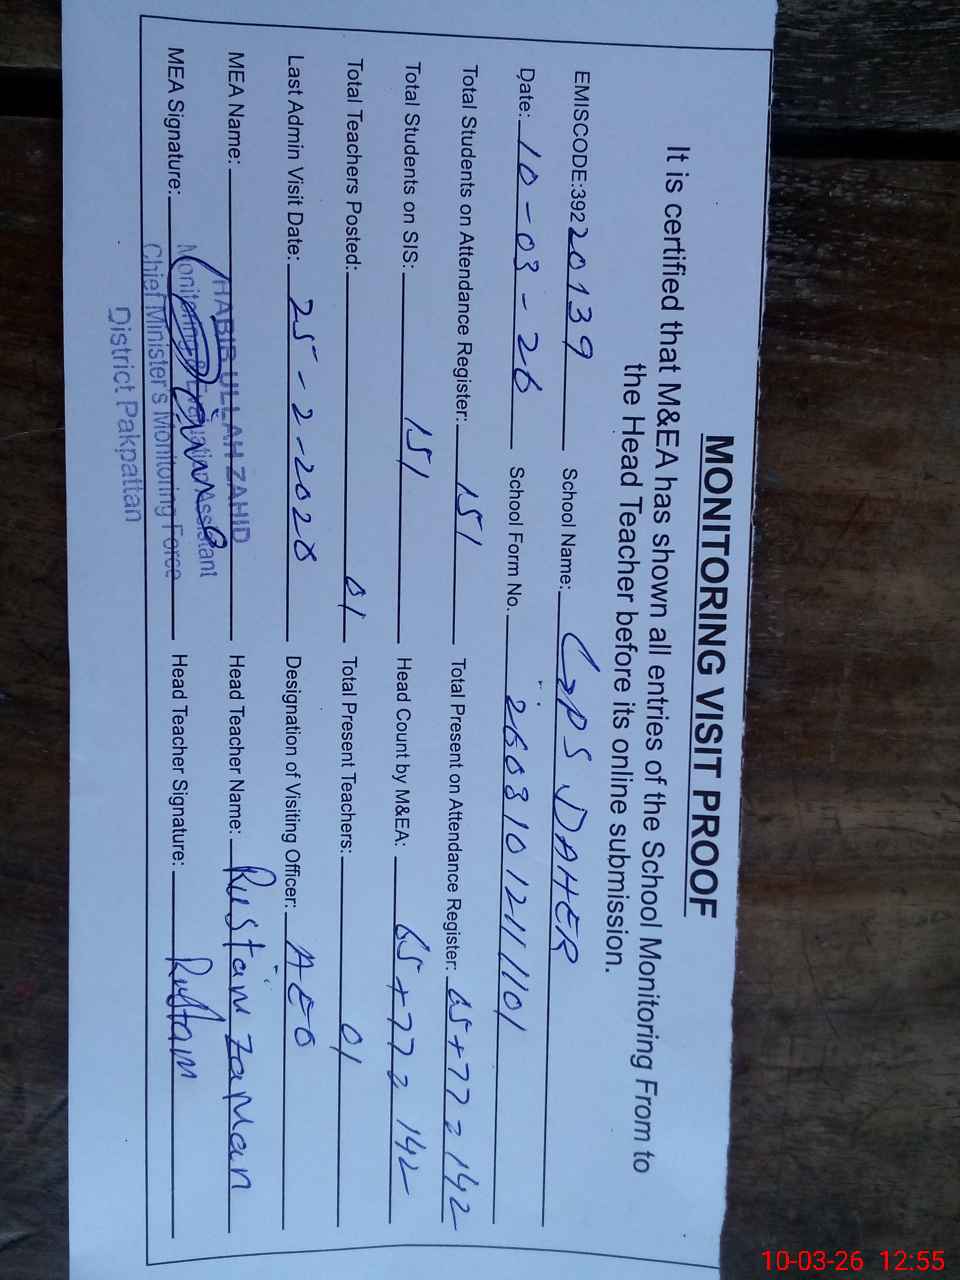 MONITORING VISIT PROOF
It is certified that M&EA has shown all entries of the School Monitoring From to
the Head Teacher before its online submission.
EMISCODE:39220139 School Name: GPS DAHER
Date: 10-03-26 School Form No. 2603101211101
Total Students on Attendance Register: 151 Total Present on Attendance Register: 65+77=142
Total Students on SIS: 151 Head Count by M&EA: 65+77=142
Total Teachers Posted: 01 Total Present Teachers: 01
Last Admin Visit Date: 25-2-2026 Designation of Visiting Officer: AEO
MEA Name: HABIB ULLAH ZAHID Head Teacher Name: Rustam Zaman
Monitoring & Evaluation Assistant
MEA Signature: Head Teacher Signature: Rustam
Chief Minister's Monitoring Force
District Pakpattan
10-03-26 12:55